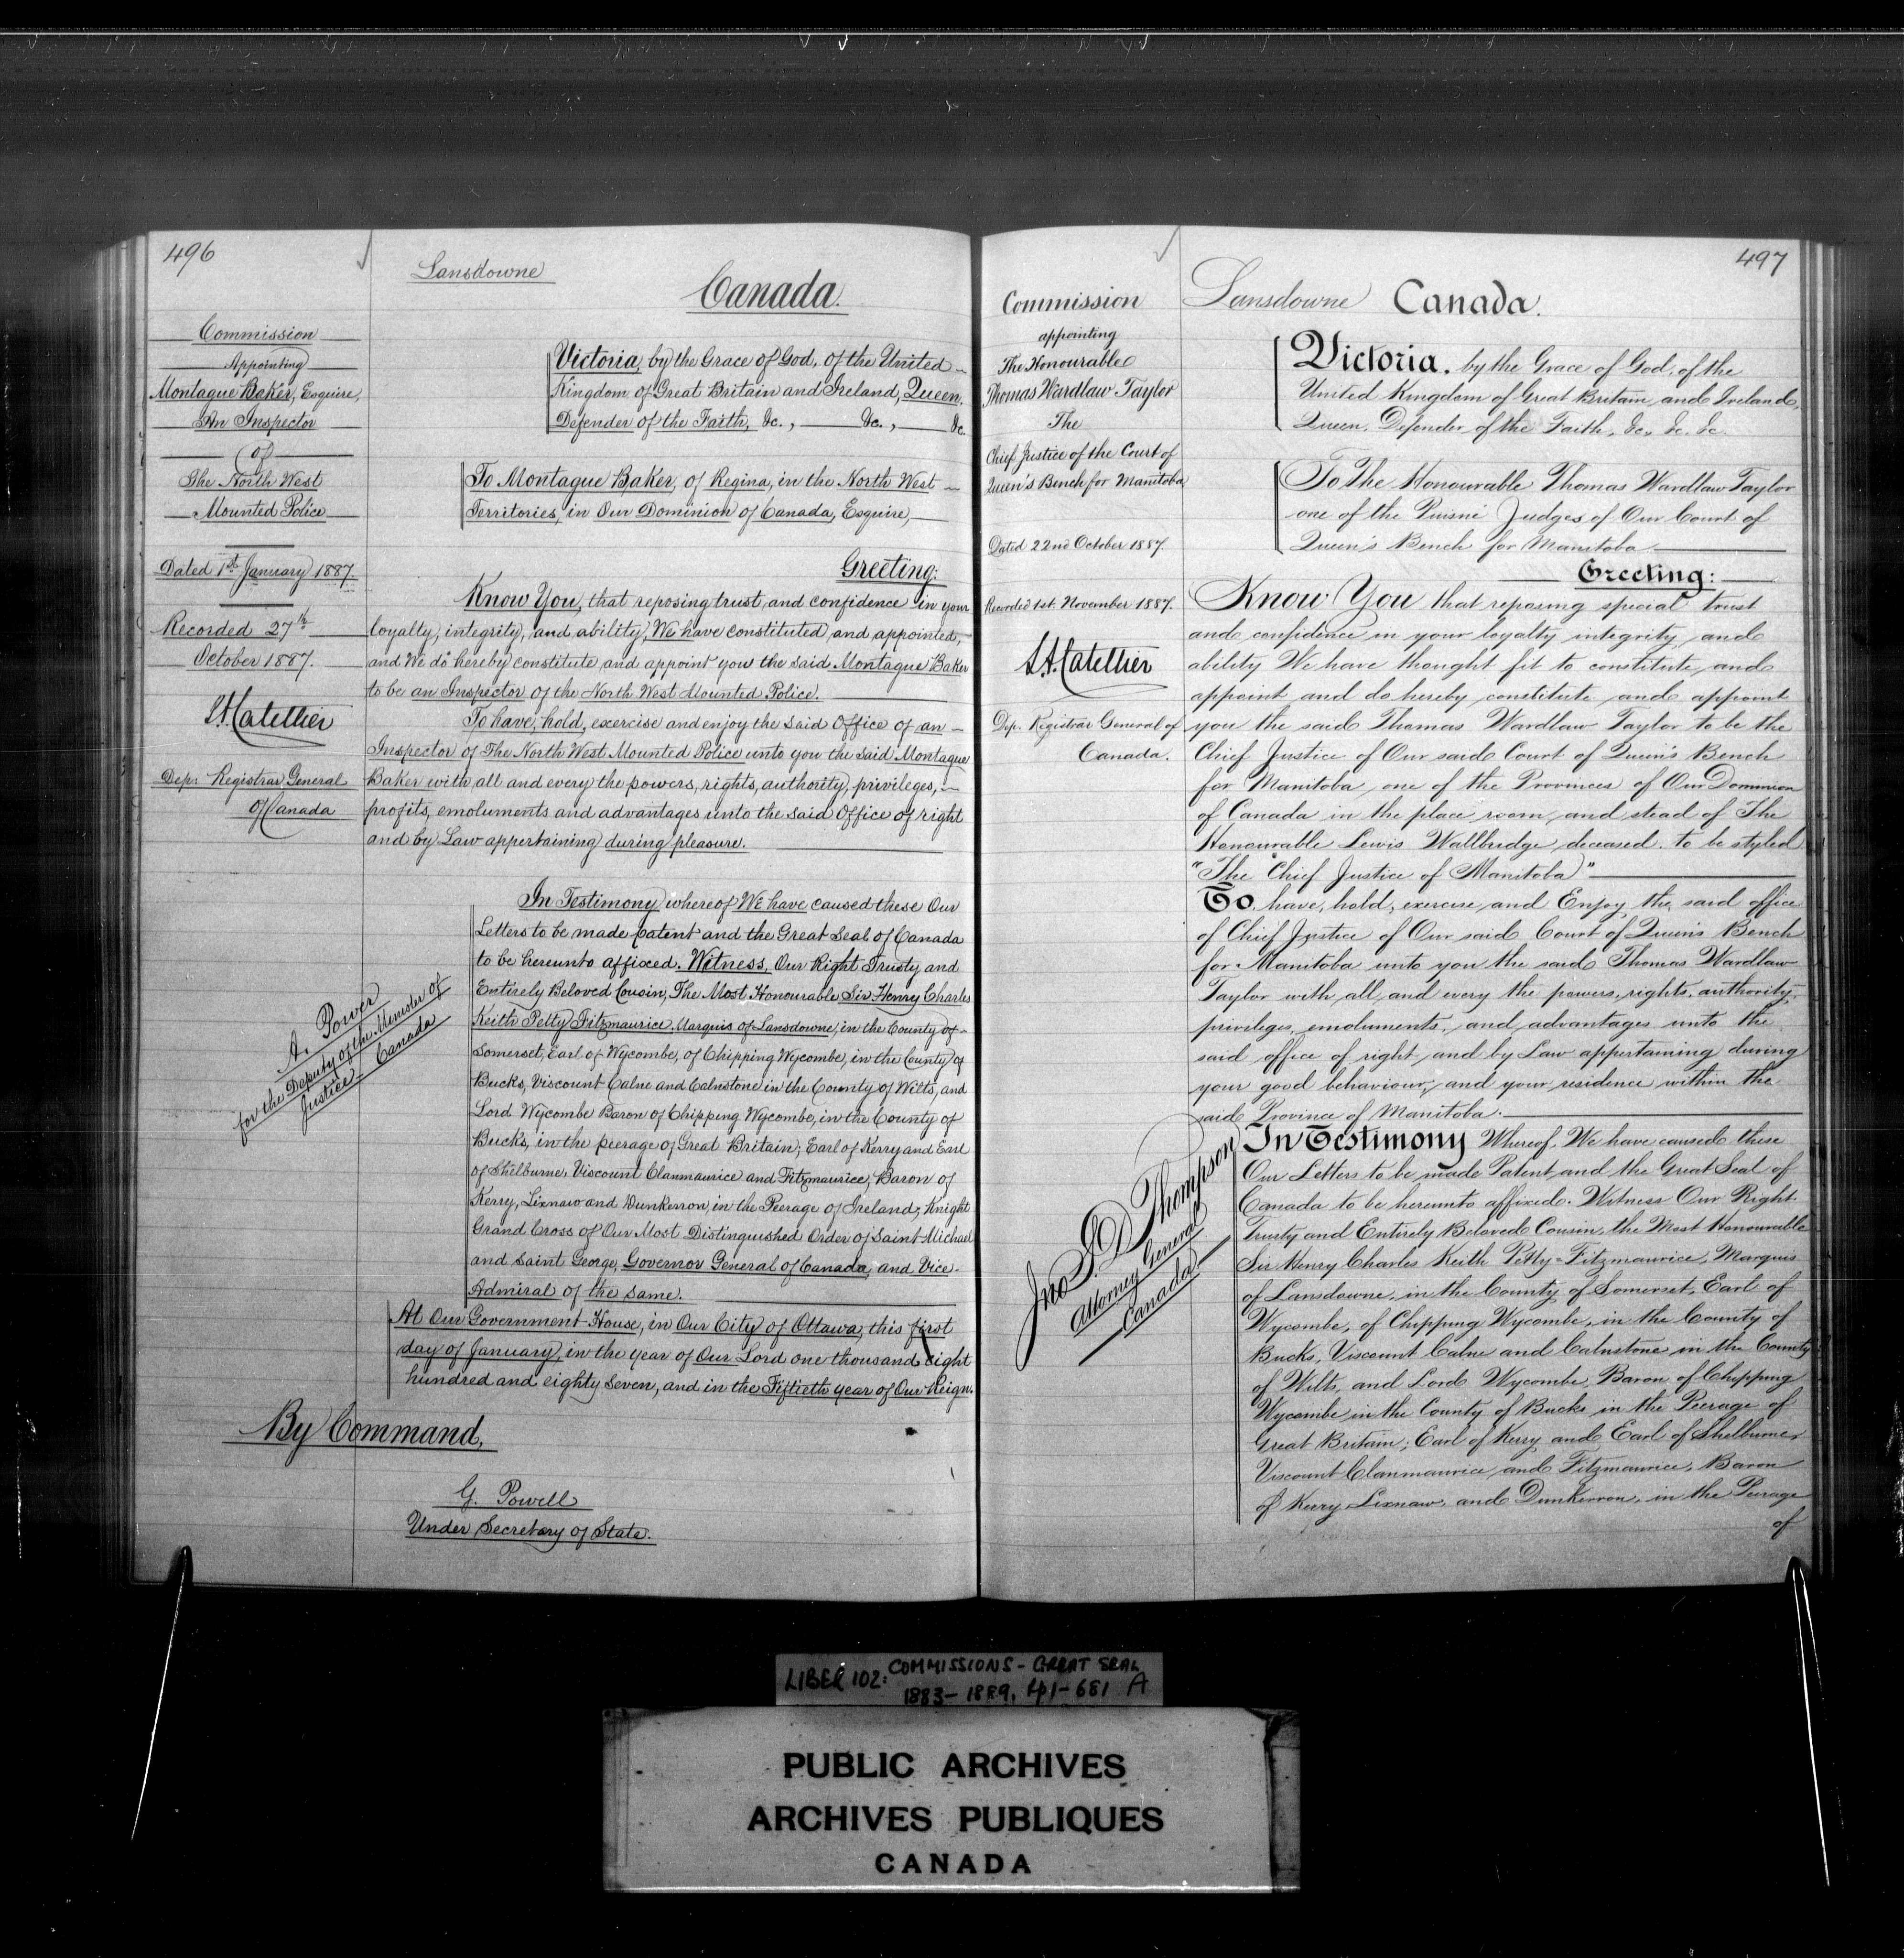 496
Lansdowne
Canada.
Commission
Appointing
Montague Baker, Esquire,
An Inspector
of
The North West
Mounted Police
Dated 1st January 1887.
Recorded 27th
October 1887.
L.A. Catellier
Depr Registrar General
of Canada
Victoria, by the Grace of God, of the United
Kingdom of Great Britain and Ireland, Queen,
Defender of the Faith, &c., &c., &c.
To Montague Baker, of Regina, in the North West
Territories, in Our Dominion of Canada, Esquire,
Greeting:
Know You, that reposing trust and confidence in your
loyalty, integrity, and ability, We have constituted and appointed,
and We do hereby constitute and appoint you the said Montague Baker
to be an Inspector of the North West Mounted Police.
To have, hold, exercise and enjoy the said Office of an
Inspector of The North West Mounted Police unto you the said Montague
Baker with all and every the powers, rights, authority, privileges,
profits, emoluments and advantages unto the said Office of right
and by Law appertaining during pleasure.
A. Power
for the Deputy of the Minister of
Justice Canada
In Testimony whereof We have caused these Our
Letters to be made patent and the Great Seal of Canada
to be hereunto affixed. Witness, Our Right Trusty and
Entirely Beloved Cousin, The Most Honourable Sir Henry Charles
Keith Petty Fitzmaurice, Marquis of Lansdowne, in the County of
Somerset, Earl of Wycombe, of Chipping Wycombe, in the County of
Bucks, Viscount Calne and Calnstone in the County of Wilts, and
Lord Wycombe Baron of Chipping Wycombe, in the County of
Bucks, in the peerage of Great Britain; Earl of Kerry and Earl
of Shelburne, Viscount Clanmaurice and Fitzmaurice, Baron of
Kerry, Lixnaw and Dunkerron, in the Peerage of Ireland; Knight
Grand Cross of Our Most Distinguished Order of Saint Michael
and Saint George, Governor General of Canada, and Vice-
Admiral of the same.
At Our Government House, in Our City of Ottawa, this first
day of January, in the year of Our Lord one thousand eight
hundred and eighty seven, and in the Fiftieth year of Our Reign.
By Command,
G. Powell
Under Secretary of State.
497
Lansdowne Canada.
Commission
appointing
The Honourable
Thomas Wardlaw Taylor
The
Chief Justice of the Court of
Queen's Bench for Manitoba
Dated 22nd October 1887.
Recorded 1st November 1887.
L.A. Catellier
Dep. Registrar General of
Canada.
Victoria, by the Grace of God, of the
United Kingdom of Great Britain and Ireland,
Queen, Defender of the Faith, &c, &c. &c
To The Honourable Thomas Wardlaw Taylor
one of the Puisné Judges of Our Court of
Queen's Bench for Manitoba
Greeting:
Know You that reposing special trust
and confidence in your loyalty integrity and
ability We have thought fit to constitute and
appoint and do hereby constitute and appoint
you the said Thomas Wardlaw Taylor to be the
Chief Justice of Our said Court of Queen's Bench
for Manitoba one of the Provinces of Our Dominion
of Canada in the place room and stead of The
Honourable Lewis Wallbridge deceased. to be styled
"The Chief Justice of Manitoba"
To have, hold, exercise and Enjoy the said office
of Chief Justice of Our said Court of Queen's Bench
for Manitoba unto you the said Thomas Wardlaw
Taylor with all and every the powers, rights, authority,
privileges, emoluments, and advantages unto the
said office of right and by Law appertaining during
your good behaviour, and your residence within the
said Province of Manitoba.
Jno S.D. Thompson
Attorney General
Canada
In Testimony Whereof, We have caused these
Our Letters to be made Patent and the Great Seal of
Canada to be hereunto affixed. Witness Our Right
Trusty and Entirely Beloved Cousin, the Most Honourable
Sir Henry Charles Keith Petty-Fitzmaurice, Marquis
of Lansdowne, in the County of Somerset, Earl of
Wycombe, of Chipping Wycombe, in the County of
Bucks, Viscount Calne and Calnstone in the County
of Wilts, and Lord Wycombe, Baron of Chipping
Wycombe in the County of Bucks in the Peerage of
Great Britain; Earl of Kerry and Earl of Shelburne
Viscount Clanmaurice and Fitzmaurice, Baron
of Kerry Lixnaw, and Dunkerron, in the Peerage
of
LIBER 102: COMMISSIONS - GREAT SEAL
1883-1889, pp1-681 A
PUBLIC ARCHIVES
ARCHIVES PUBLIQUES
CANADA